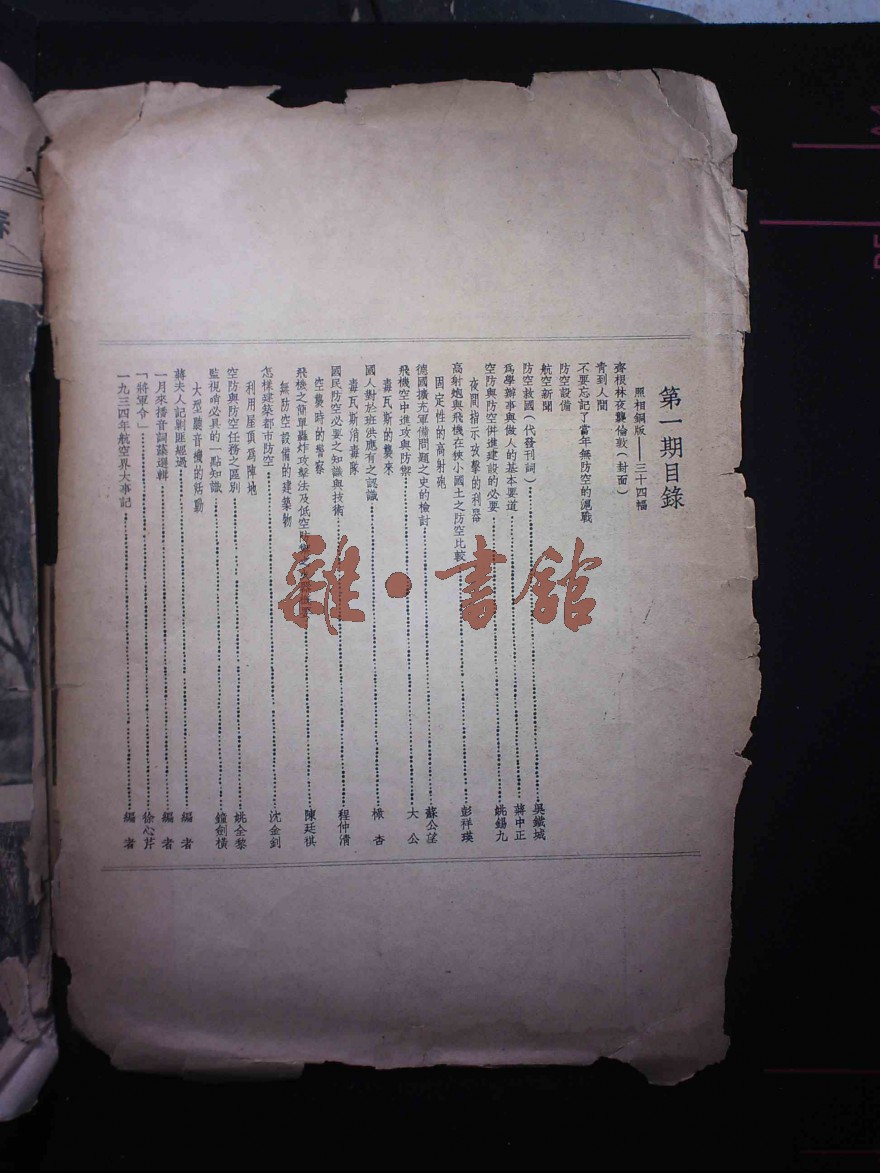 第一期目錄
照相銅版——三十四幅
齊根林夜襲倫敦(封面)
青到人間
不要忘記了當年無防空的滬戰
防空設備
航空新聞
防空救國(代發刊詞)⋯⋯吳鐵城
爲學辦事與做人的基本要道⋯⋯蔣中正
空防與防空併進建設的必要⋯⋯姚錫九
夜間指示攻擊的利器
高射炮與飛機在狹小國土之防空比較⋯⋯彭祥瑛
固定性的高射砲
德國擴充軍備問題之史的檢討⋯⋯蘇公
飛機空中進攻與防禦⋯⋯大公
毒瓦斯的襲來
國人對於班洪應有之認識⋯⋯杏
毒瓦斯消毒隊
國民防空必要之知識與技術⋯⋯程仲清
空襲時的警察
飛機之簡單轟炸攻擊法及低空防禦之⋯⋯陳廷祺
無防空設備的建築物
怎樣建築都市防空⋯⋯沈金釗
利用屋頂爲陣地
空防與防空任務之區別⋯⋯姚全黎
監視哨必具的一點知識⋯⋯鐘劍橫
大型聽音機的活動
蔣夫人記剿匪經過⋯⋯編者
一月來播音詞藻選輯⋯⋯編者
「將軍令」⋯⋯徐心芹
一九三四年航空界大事記⋯⋯編者
雜·書館